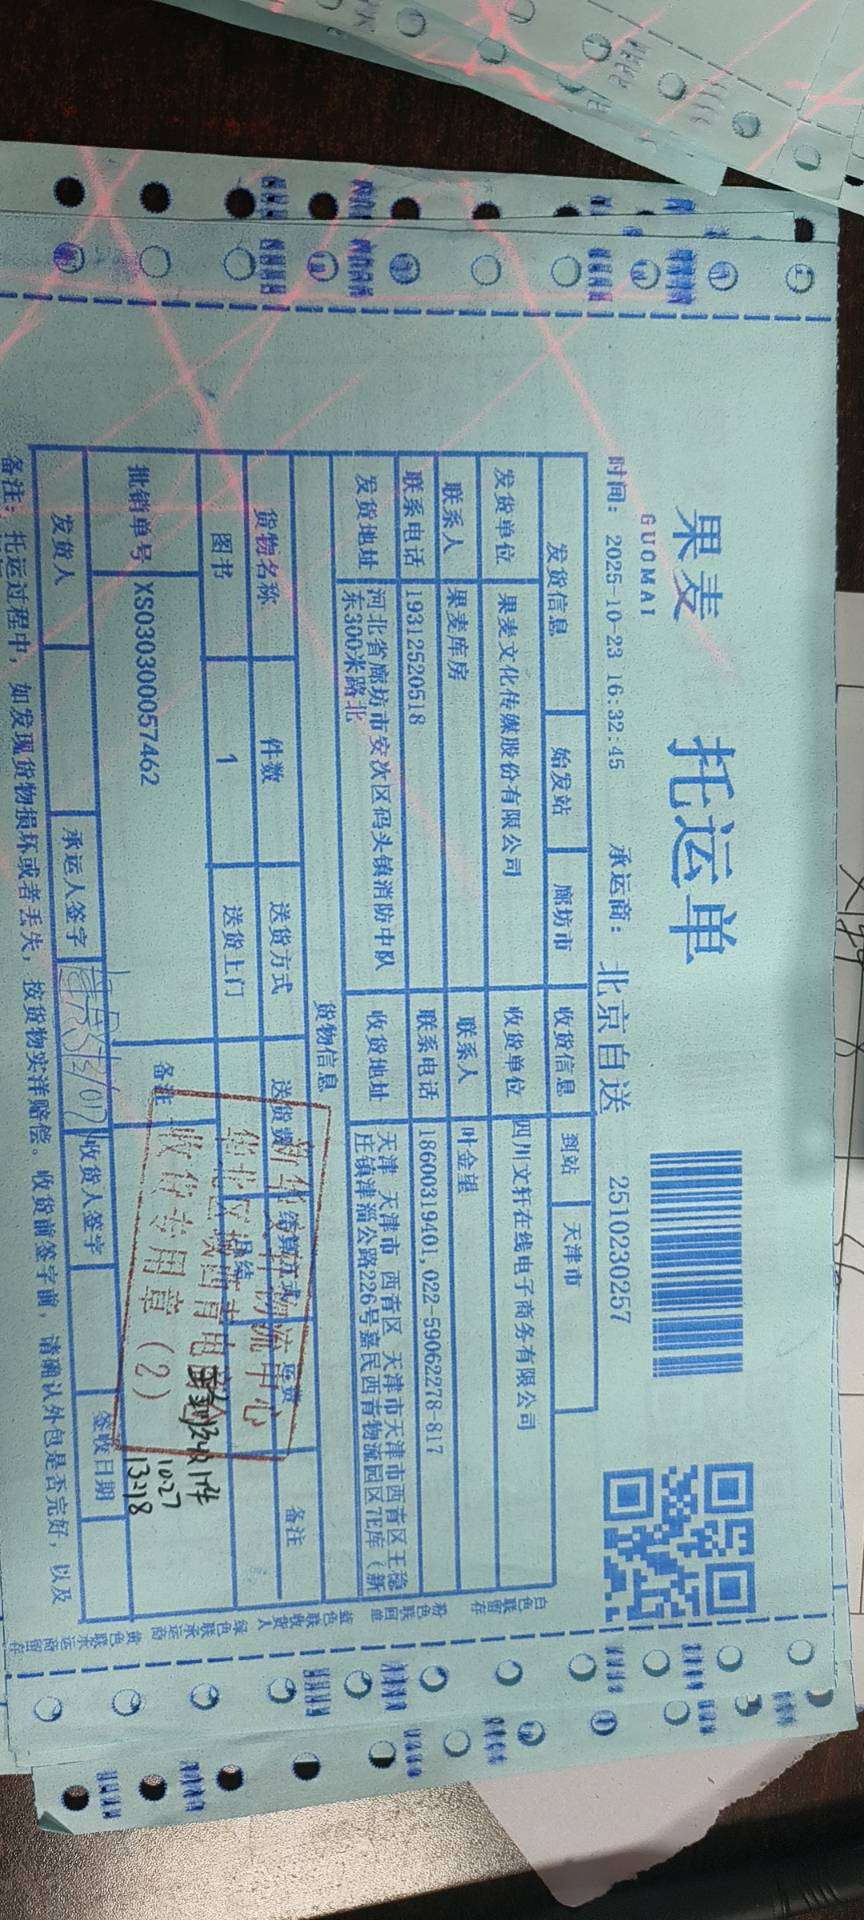 果麦 托运单
GUOMAI
时间: 2025-10-23 16:32:45 承运商: 北京自送 2510230257
发货信息 始发站 廊坊市 收货信息 到站 天津市
发货单位 果麦文化传媒股份有限公司 收货单位 四川文轩在线电子商务有限公司
联系人 果麦库房 联系人 叶金望
联系电话 19312520518 联系电话 18600319401,022-59062278-817
发货地址 河北省廊坊市安次区码头镇消防中队东300米路北 收货地址 天津 天津市 西青区 天津市天津市西青区王稳庄镇津淄公路226号嘉民西青物流园区7E库（新
货物信息
货物名称 件数 送货方式 送货费 结算方式 运费 备注
图书 1 送货上门 月结
批销单号 XS030300057462 备注
发货人 承运人签字 收货人签字 签收日期
备注: 托运过程中, 如发现货物损坏或者丢失, 按货物实洋赔偿。收货前签字前, 请确认外包是否完好, 以及
白色联留存 粉色联回单 蓝色联收货人 绿色联承运商 黄色联承运商留存
收货专用章(2)
10.27
13:18